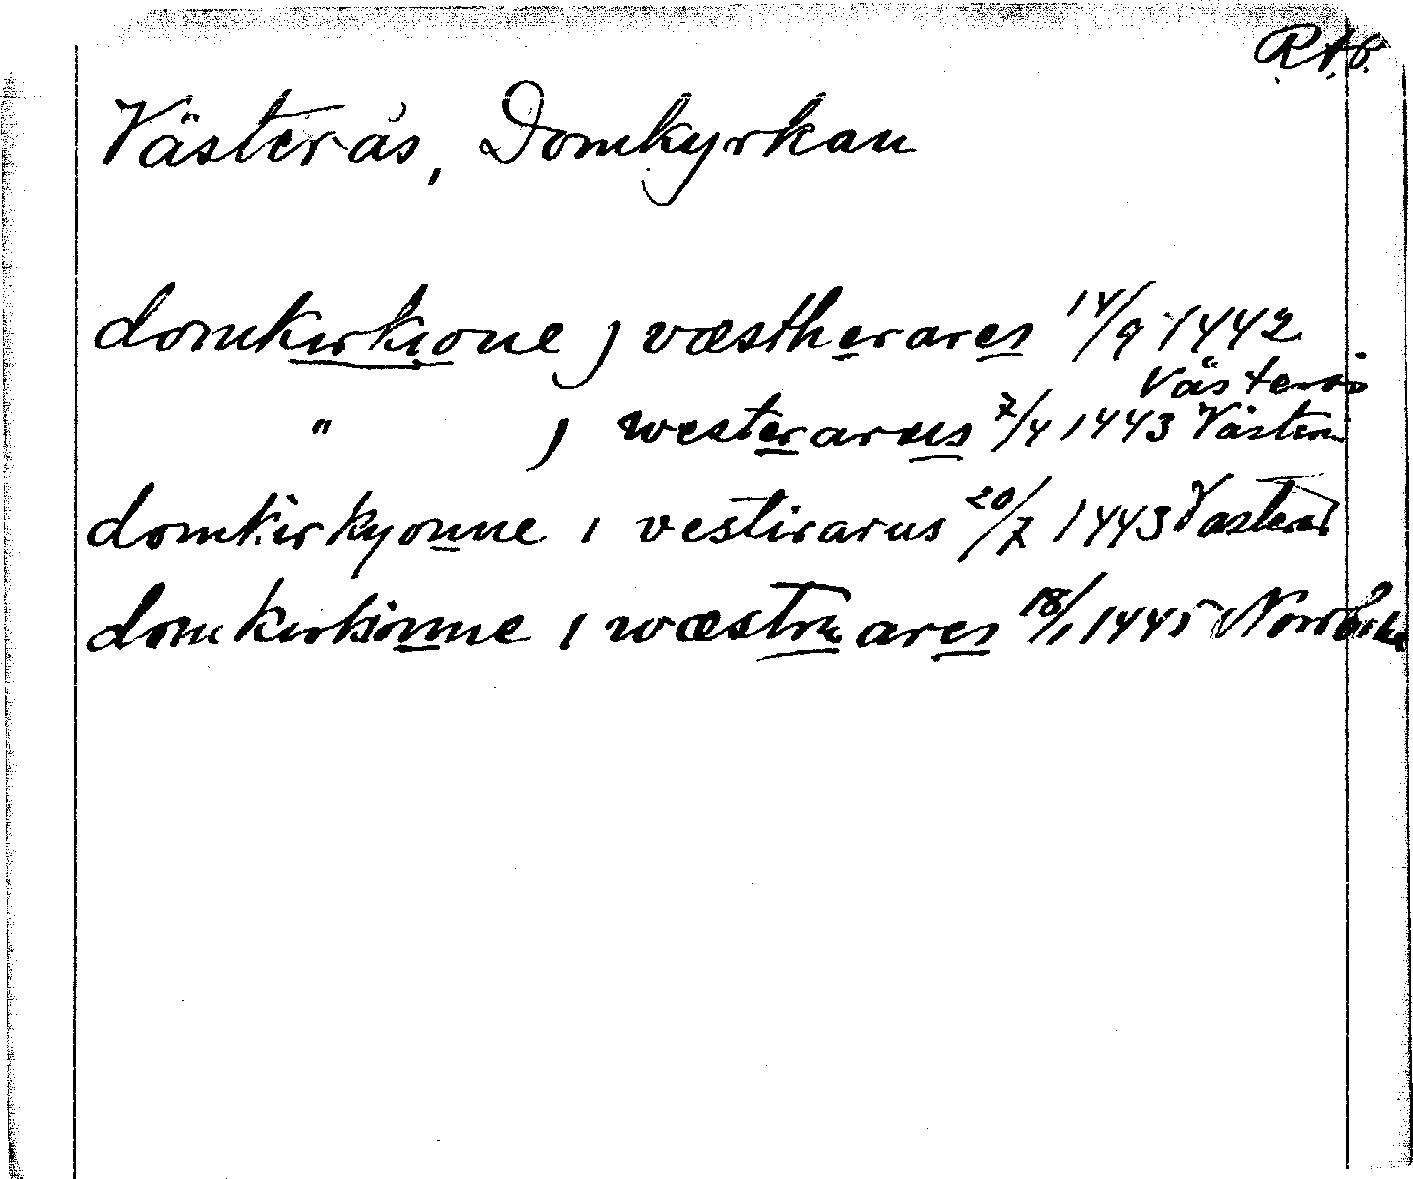 R.A.P.
Västerås, Domkyrkan
domkirkione j væstherares 14/9 1442
Västerås
" j westerarus 7/4 1443 Västerås
domkirkyonne i vestirarus 20/7 1443 Västerås
domkirkionne i wæstr ares 18/1 1445 Norrbärke